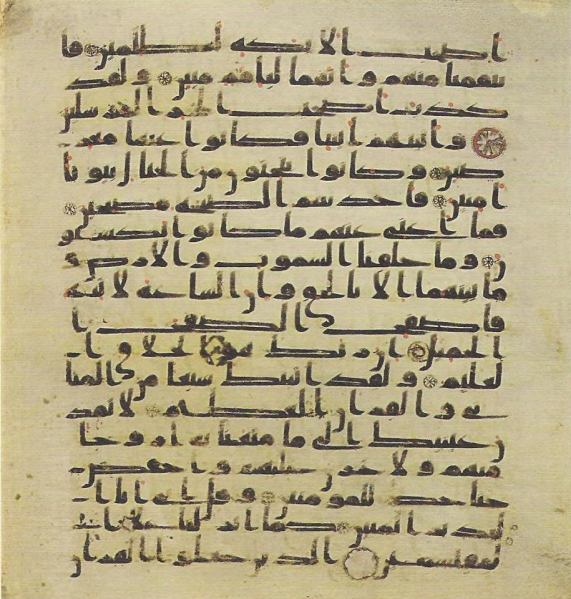 اصحب الايكه لظلمين فا
نتقمنا منهم وانهما لبامام مبين ولقد
كذب اصحب الحجر المرسلين
واتينهم ايتنا فكانوا عنها معر
ضين وكانوا ينحتون من الجبال بيوتا
امنين فاخذتهم الصيحه مصبحين
فما اغنى عنهم ما كانوا يكسبو
ن وما خلقنا السموت والارض و
ما بينهما الا بالحق وان الساعه لاتيه
فاصفح الصفح ا
لجميل ان ربك هو الخلق ا
لعليم ولقد اتينك سبعا من المثا
ني والقران العظيم لا تمد
ن عينيك الى ما متعنا به ازوجا
منهم ولا تحزن عليهم واخفض
جناحك للمومنين وقل اني انا ا
لنذير المبين كما انزلنا على ا
لمقتسمين الذين جعلوا القران